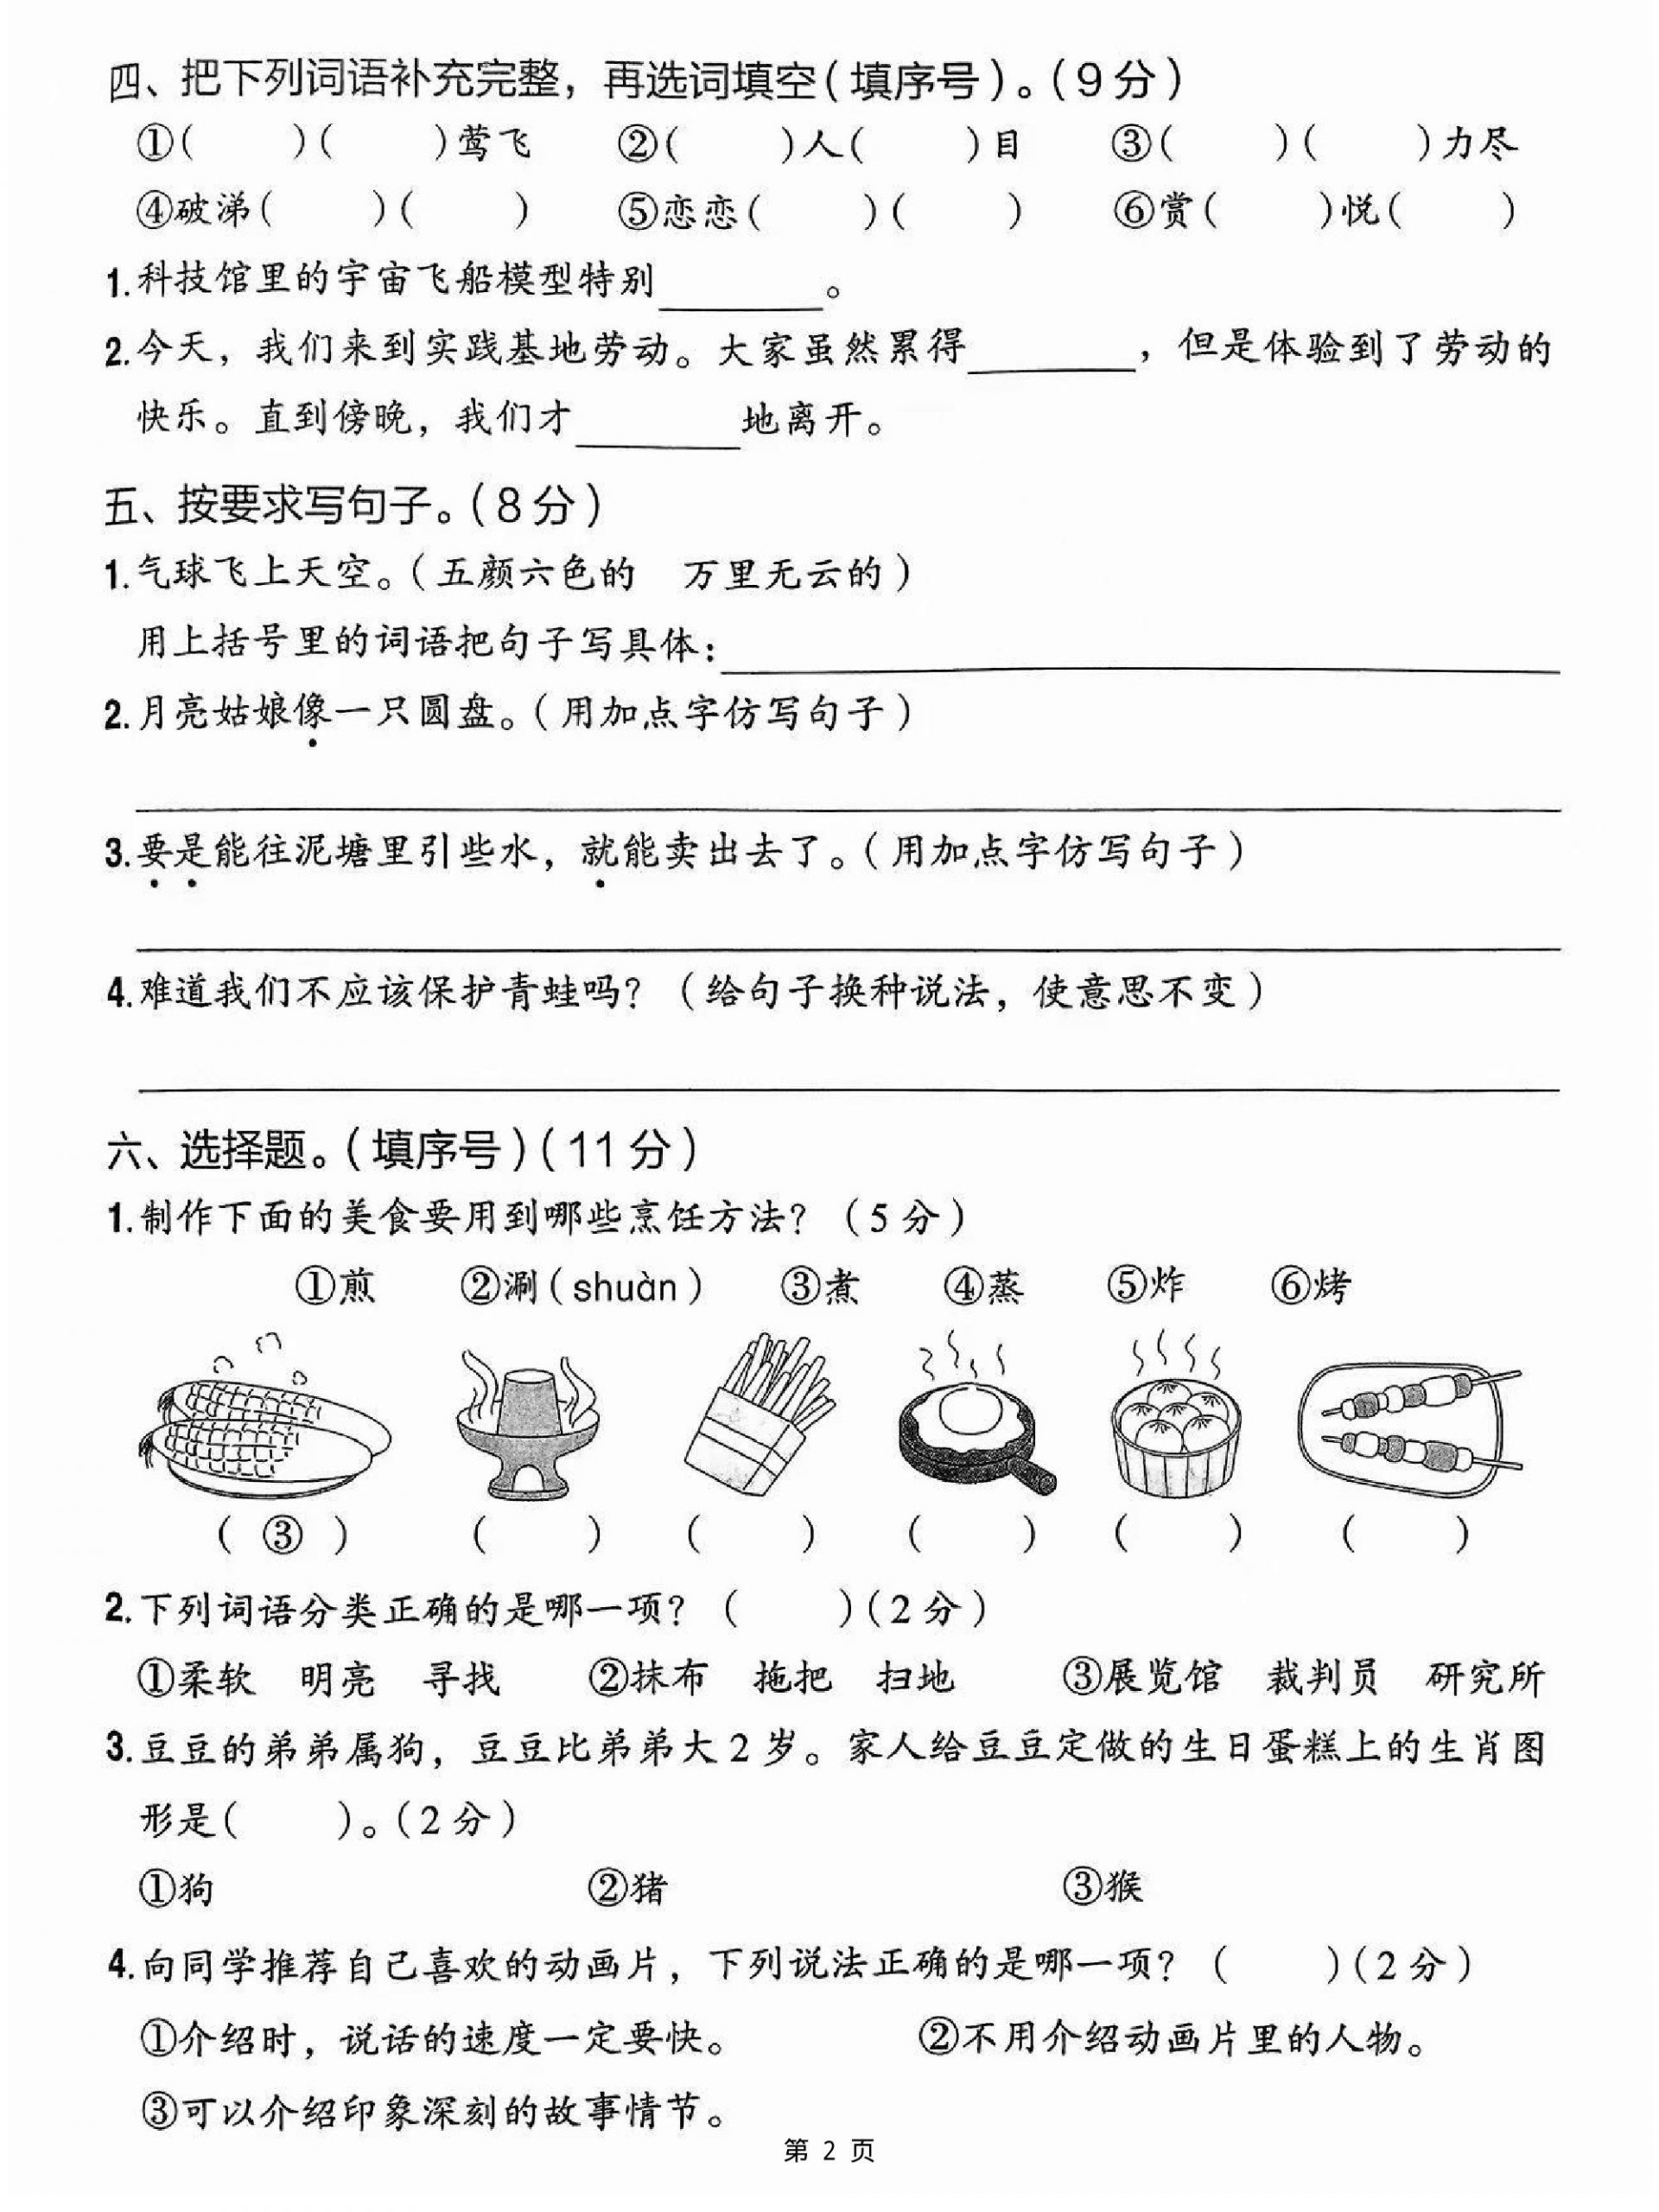 四、把下列词语补充完整，再选词填空(填序号)。(9分)
①(　　)(　　)莺飞　②(　　)人(　　)目　③(　　)(　　)力尽
④破涕(　　)(　　)　⑤恋恋(　　)(　　)　⑥赏(　　)悦(　　)
1.科技馆里的宇宙飞船模型特别______。
2.今天，我们来到实践基地劳动。大家虽然累得______，但是体验到了劳动的
快乐。直到傍晚，我们才______地离开。
五、按要求写句子。(8分)
1.气球飞上天空。(五颜六色的　万里无云的)
用上括号里的词语把句子写具体：______
2.月亮姑娘像一只圆盘。(用加点字仿写句子)
3.要是能往泥塘里引些水，就能卖出去了。(用加点字仿写句子)
4.难道我们不应该保护青蛙吗？(给句子换种说法，使意思不变)
六、选择题。(填序号)(11分)
1.制作下面的美食要用到哪些烹饪方法？(5分)
①煎　②涮(shuàn)　③煮　④蒸　⑤炸　⑥烤
(③)　(　　)　(　　)　(　　)　(　　)　(　　)
2.下列词语分类正确的是哪一项？(　　)(2分)
①柔软　明亮　寻找　②抹布　拖把　扫地　③展览馆　裁判员　研究所
3.豆豆的弟弟属狗，豆豆比弟弟大2岁。家人给豆豆定做的生日蛋糕上的生肖图
形是(　　)。(2分)
①狗　②猪　③猴
4.向同学推荐自己喜欢的动画片，下列说法正确的是哪一项？(　　)(2分)
①介绍时，说话的速度一定要快。　②不用介绍动画片里的人物。
③可以介绍印象深刻的故事情节。
第 2 页